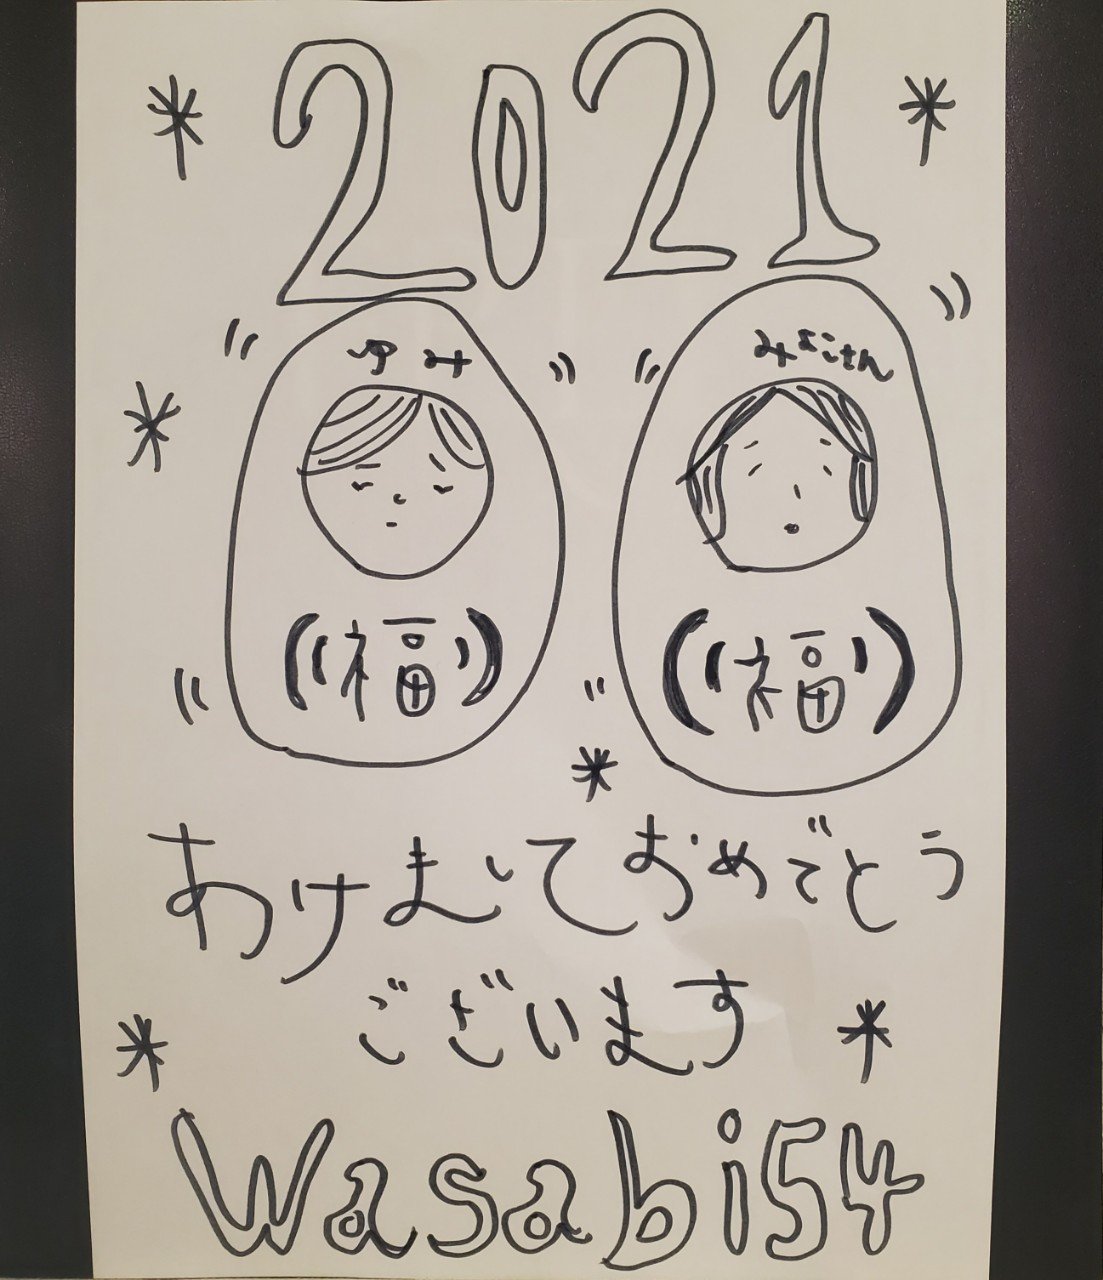 2021
ゆみ
みよこさん
福
福
あけましておめでとう
ございます
Wasabi54